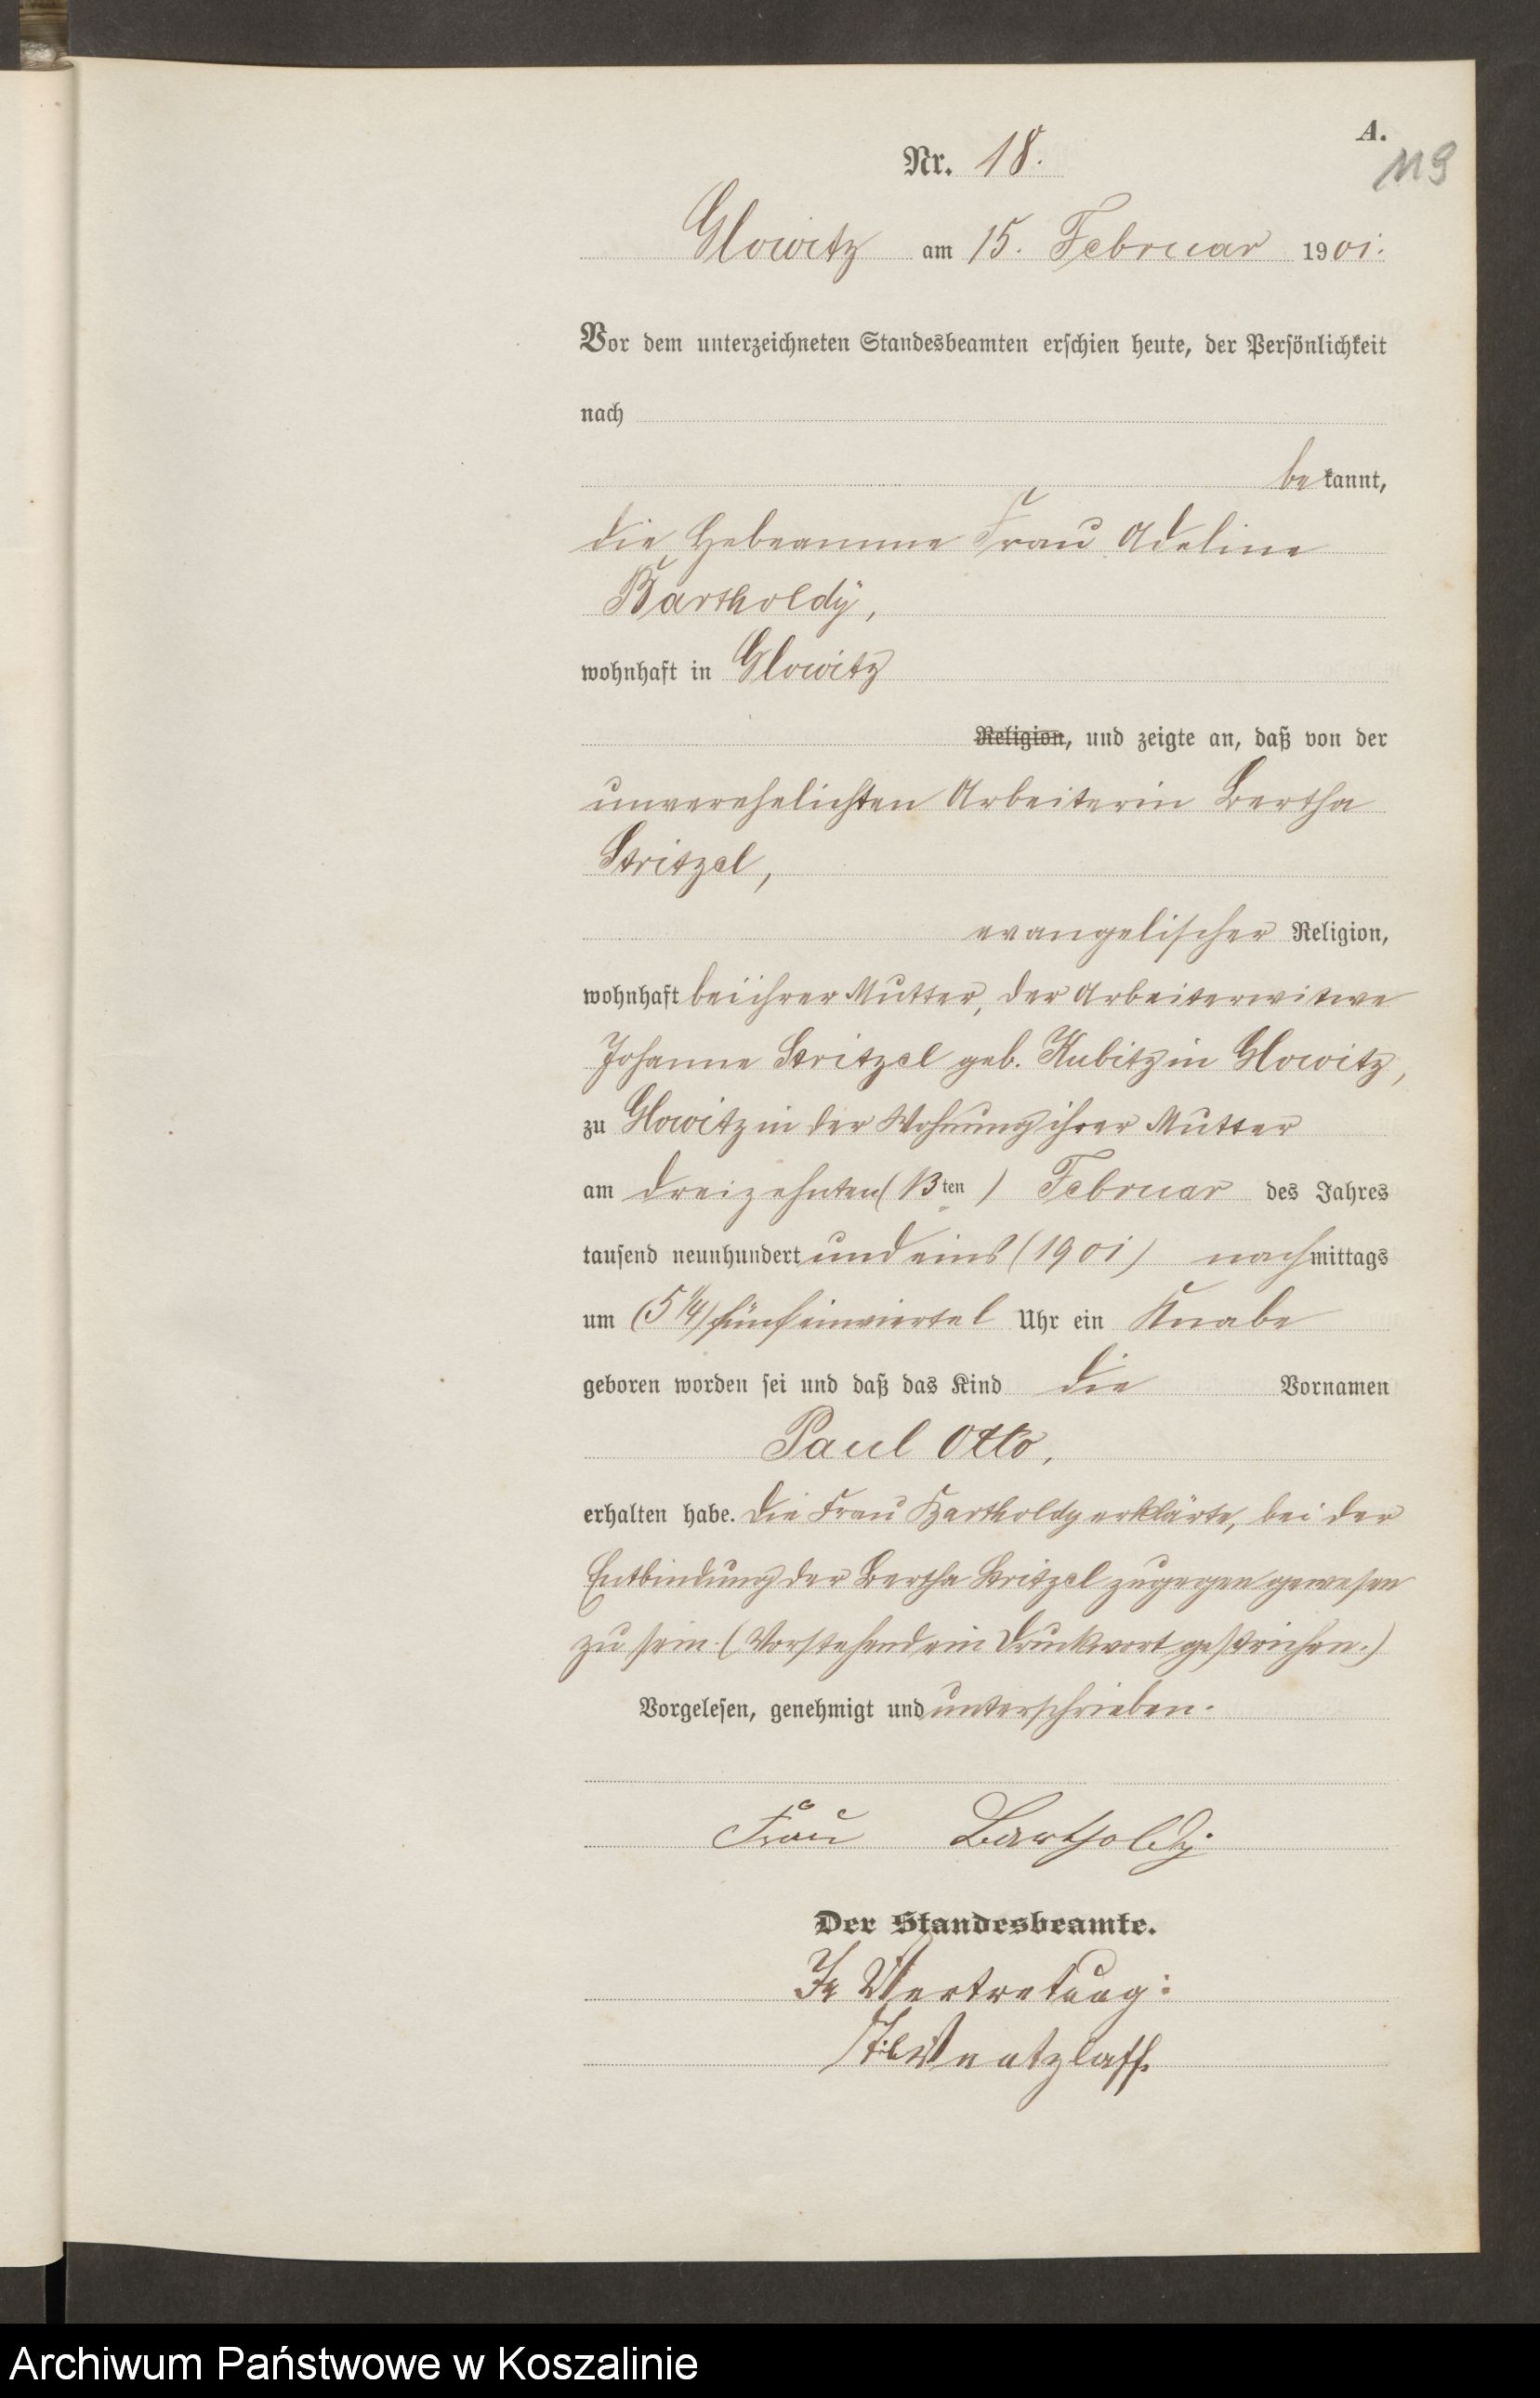 A.
119
Nr. 18.
Glowitz am 15. Februar 1901.
Vor dem unterzeichneten Standesbeamten erschien heute, der Persönlichkeit
nach
bekannt,
die Hebeamme Frau Adeline
Bartholdÿ,
wohnhaft in Glowitz
Religion, und zeigte an, daß von der
unverehelichten Arbeiterin Bertha
Stritzel,
evangelischer Religion,
wohnhaft bei ihrer Mutter, der Arbeiterwitwe
Johanne Stritzel geb. Kubitz in Glowitz,
zu Glowitz in der Wohnung ihrer Mutter
am dreizehnten (13ten) Februar des Jahres
tausend neunhundert und eins (1901) nachmittags
um (5 1/4) fünf einviertel Uhr ein Knabe
geboren worden sei und daß das Kind die Vornamen
Paul Otto,
erhalten habe. Die Frau Bartholdy erklärte, bei der
Entbindung der Bertha Stritzel zugegen gewesen
zu sein. (Vorstehend ein Druckwort gestrichen.)
Vorgelesen, genehmigt und unterschrieben.
Frau Bartholdy.
Der Standesbeamte.
In Vertretung:
Wentzlaff.
Archiwum Państwowe w Koszalinie